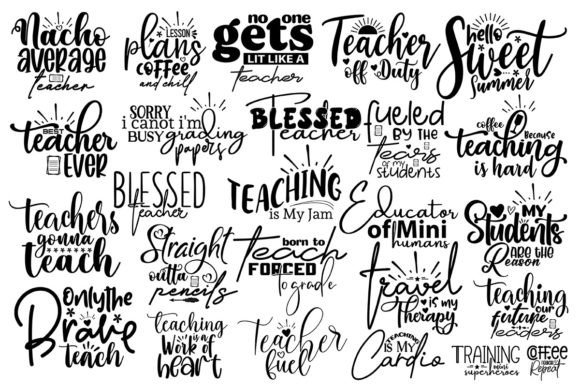 Nacho
average
teacher
LESSON
plans
coffee
and chill
no one
gets
LIT LIKE A
teacher
Teacher
off Duty
hello
Sweet
Summer
BEST
teacher
EVER
SORRY
i canot i'm
BUSY grading
papers
BLESSED
Teacher
fueled
BY THE
Tears
of my
students
coffee
Because
teaching
is hard
BLESSED
teacher
TEACHING
is My Jam
Educator
of Mini
humans
MY
Students
ARE THE
Reason
Teachers
gonna
teach
Straight
outta
pencils
born to
Teach
FORCED
To grade
travel
is my
Therapy
Teaching
our
future
leaders
Only the
Brave
teach
teaching
is a
Work of
heart
Teacher
fuel
TEACHING
is My
Cardio
TRAINING
mini
superheroes
Coffee
TEACH
Repeat